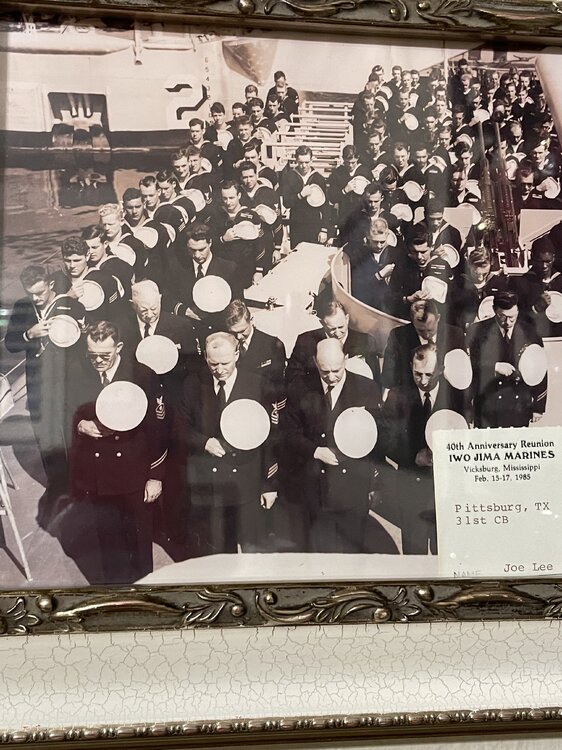 2
40th Anniversary Reunion
IWO JIMA MARINES
Vicksburg, Mississippi
Feb. 15-17, 1985
Pittsburg, TX
31st CB
Joe Lee
NAME